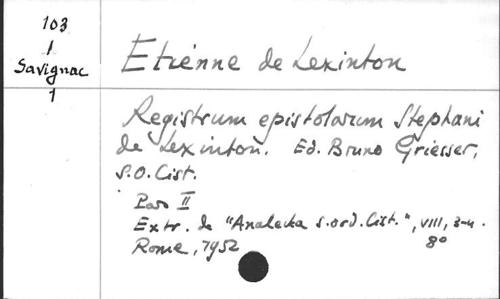 103
/
Savignac
1
Etienne de Lexinton
Registrum epistolarum Stephani
de Lexinton. Ed. Bruno Griesser,
S.O.Cist.
Pars II
Extr. de "Analecta s.ord.Cist.", VIII, 3-4.
Rome, 1952 8º